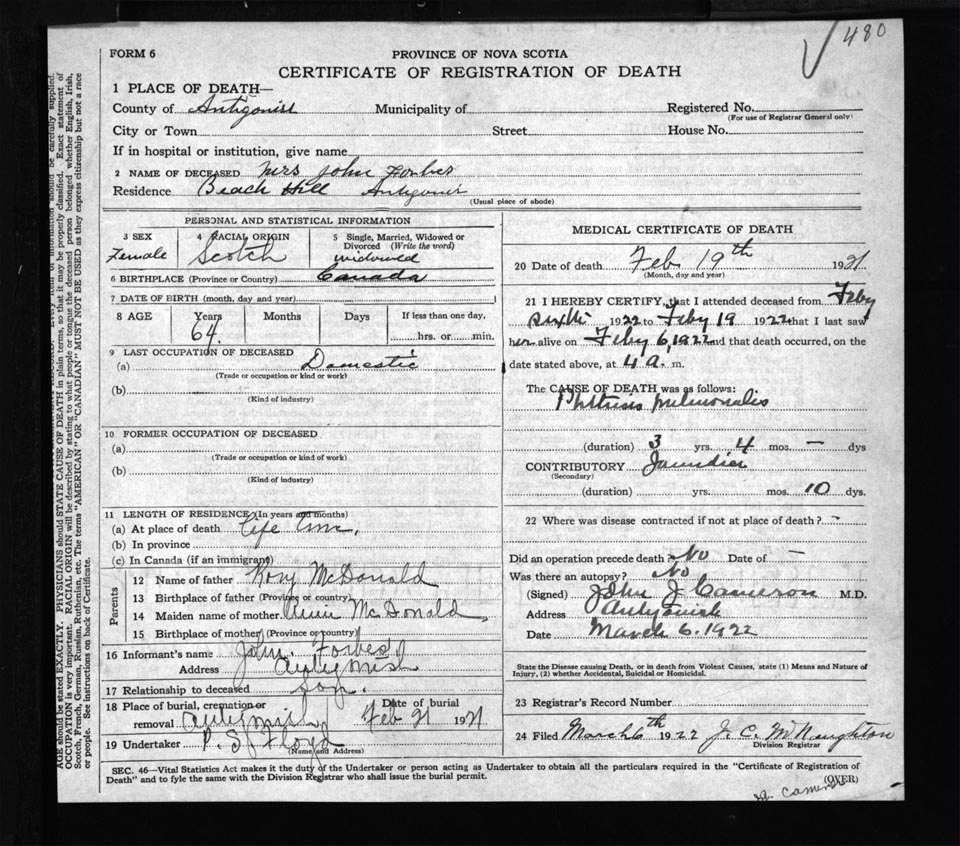 480
FORM 6
PROVINCE OF NOVA SCOTIA
CERTIFICATE OF REGISTRATION OF DEATH
1 PLACE OF DEATH—
County of Antigonish Municipality of Registered No.
(For use of Registrar General only)
City or Town Street House No.
If in hospital or institution, give name
2 NAME OF DECEASED Mrs John Forbes
Residence Beach Hill Antigonish
(Usual place of abode)
PERSONAL AND STATISTICAL INFORMATION
3 SEX 4 RACIAL ORIGIN 5 Single, Married, Widowed or Divorced (Write the word)
Female Scotch widowed
6 BIRTHPLACE (Province or Country) Canada
7 DATE OF BIRTH (month, day and year)
8 AGE Years Months Days If less than one day,
64. hrs. or min.
9 LAST OCCUPATION OF DECEASED
(a) Domestic
(Trade or occupation or kind or work)
(b)
(Kind of industry)
10 FORMER OCCUPATION OF DECEASED
(a)
(Trade or occupation or kind of work)
(b)
(Kind of industry)
11 LENGTH OF RESIDENCE (In years and months)
(a) At place of death Life time,
(b) In province
(c) In Canada (if an immigrant)
Parents
12 Name of father Rory McDonald
13 Birthplace of father (Province or country)
14 Maiden name of mother McDonald
15 Birthplace of mother (Province or country)
16 Informant's name John Forbes
Address Antigonish
17 Relationship to deceased Son.
18 Place of burial, cremation or Date of burial
removal Antigonish Feb 21 1921
19 Undertaker P. S. Floyd
(Name and Address)
MEDICAL CERTIFICATE OF DEATH
20 Date of death Feb 19th 1921
(Month, day and year)
21 I HEREBY CERTIFY, that I attended deceased from Feby
sixth 1922 to Feby 19 1922 that I last saw
her alive on Feby 6, 1922 and that death occurred, on the
date stated above, at 4 a. m.
The CAUSE OF DEATH was as follows:
Phthisis pulmonalis
(duration) 3 yrs. 4 mos. — dys
CONTRIBUTORY Jaundice
(Secondary)
(duration) yrs. mos. 10 dys.
22 Where was disease contracted if not at place of death? -
Did an operation precede death No Date of —
Was there an autopsy? No
(Signed) John J Cameron M.D.
Address Antigonish
Date March 6. 1922
State the Disease causing Death, or in death from Violent Causes, state (1) Means and Nature of
Injury, (2) whether Accidental, Suicidal or Homicidal.
23 Registrar's Record Number
24 Filed March 6th 1922 J. C. McNaughton
Division Registrar
SEC. 46—Vital Statistics Act makes it the duty of the Undertaker or person acting as Undertaker to obtain all the particulars required in the "Certificate of Registration of
Death" and to fyle the same with the Division Registrar who shall issue the burial permit.
(OVER)
AGE should be stated EXACTLY. PHYSICIANS should STATE CAUSE OF DEATH in plain terms, so that it may be properly classified. Exact statement of
OCCUPATION is very important. RACIAL ORIGIN will be described by stating to what people or tongue the deceased person belonged whether English, Irish,
Scotch, French, German, Russian, Ruthenian, etc. The terms "AMERICAN" OR "CANADIAN" MUST NOT BE USED as they express citizenship but not a race
or people. See instructions on back of Certificate.